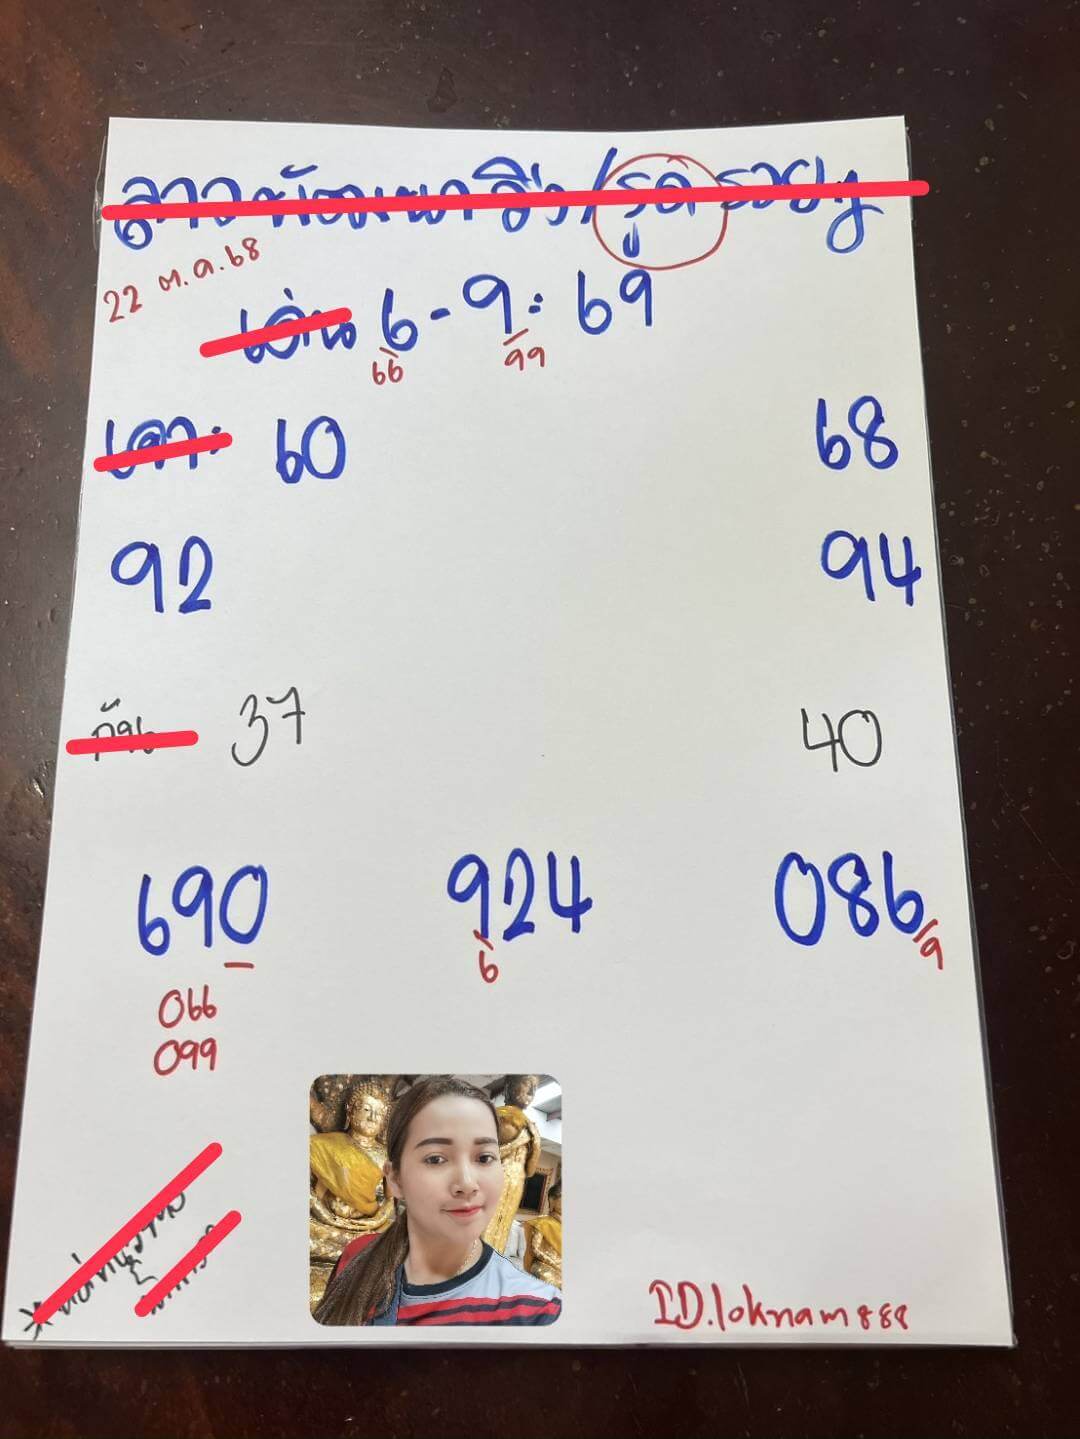 22 ต.ค.68
6 - 9 = 69
66 99
60 68
92 94
37 40
690 924 086
6 9
066
099
ID.loknam888